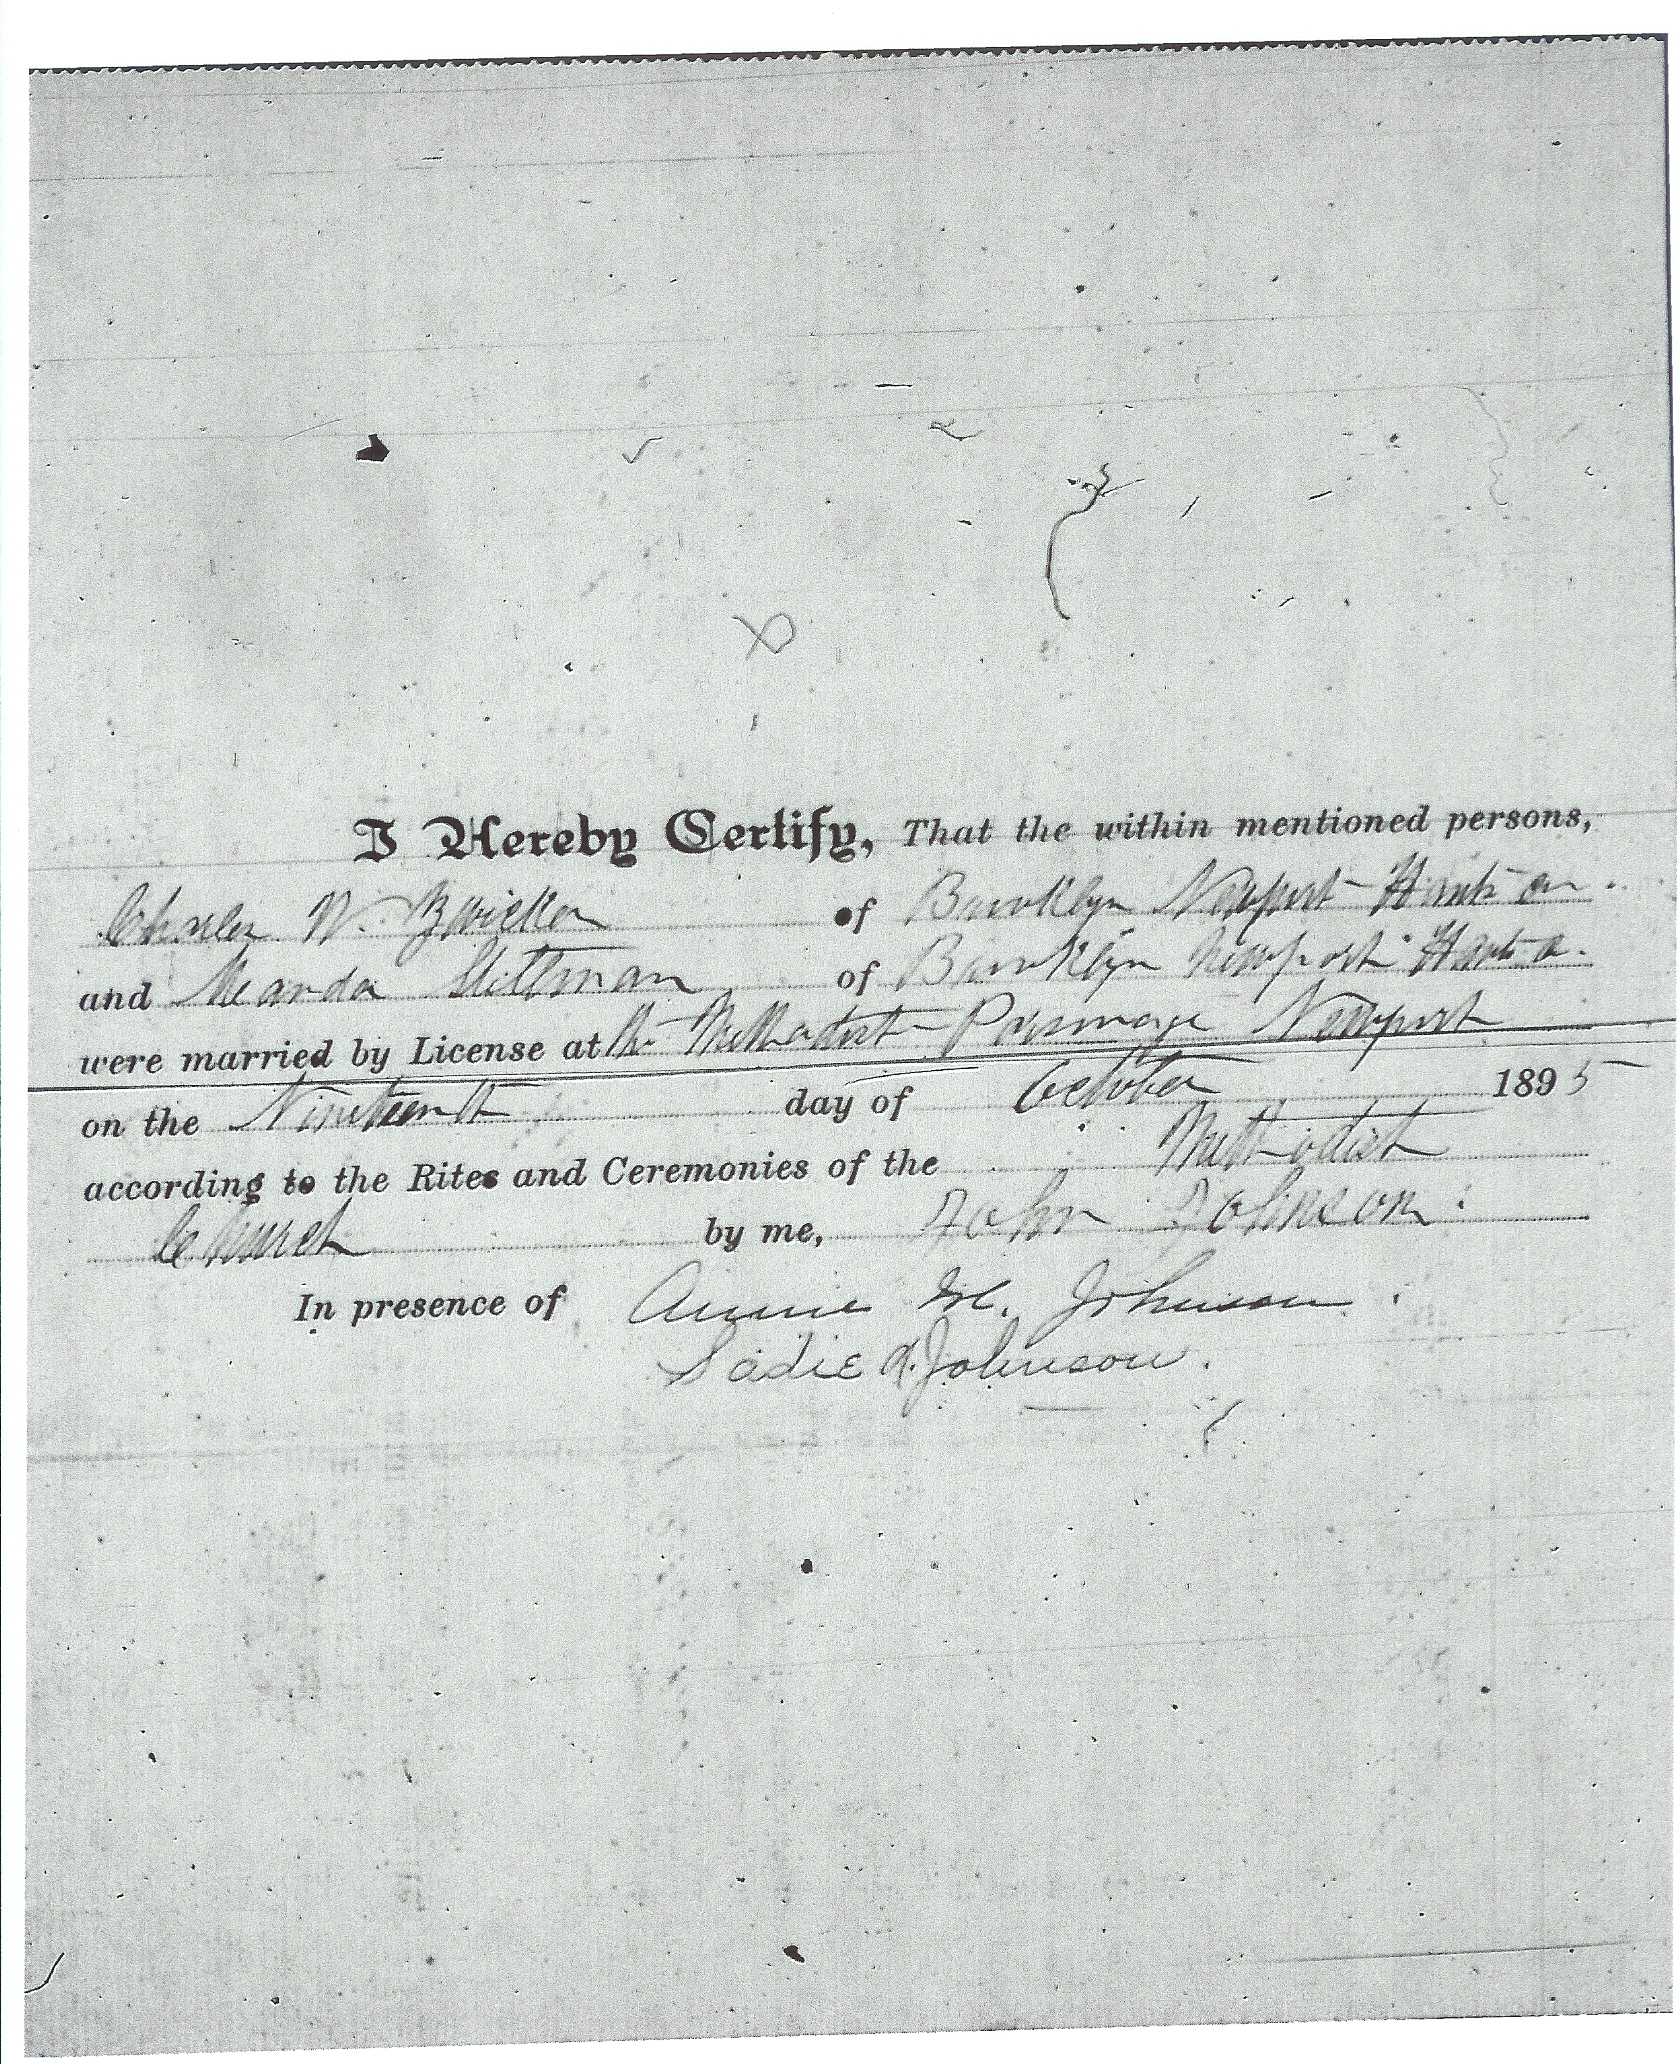 I Hereby Certify, That the within mentioned persons,
Charles W. Zwicker of Brooklyn Newport Hants
and of Brooklyn Newport Hants
were married by License at the Methodist Parsonage Newport
on the Nineteenth day of October 1895
according to the Rites and Ceremonies of the Methodist
Church by me, John Johnson.
In presence of Annie M. Johnson.
Sadie A. Johnson.